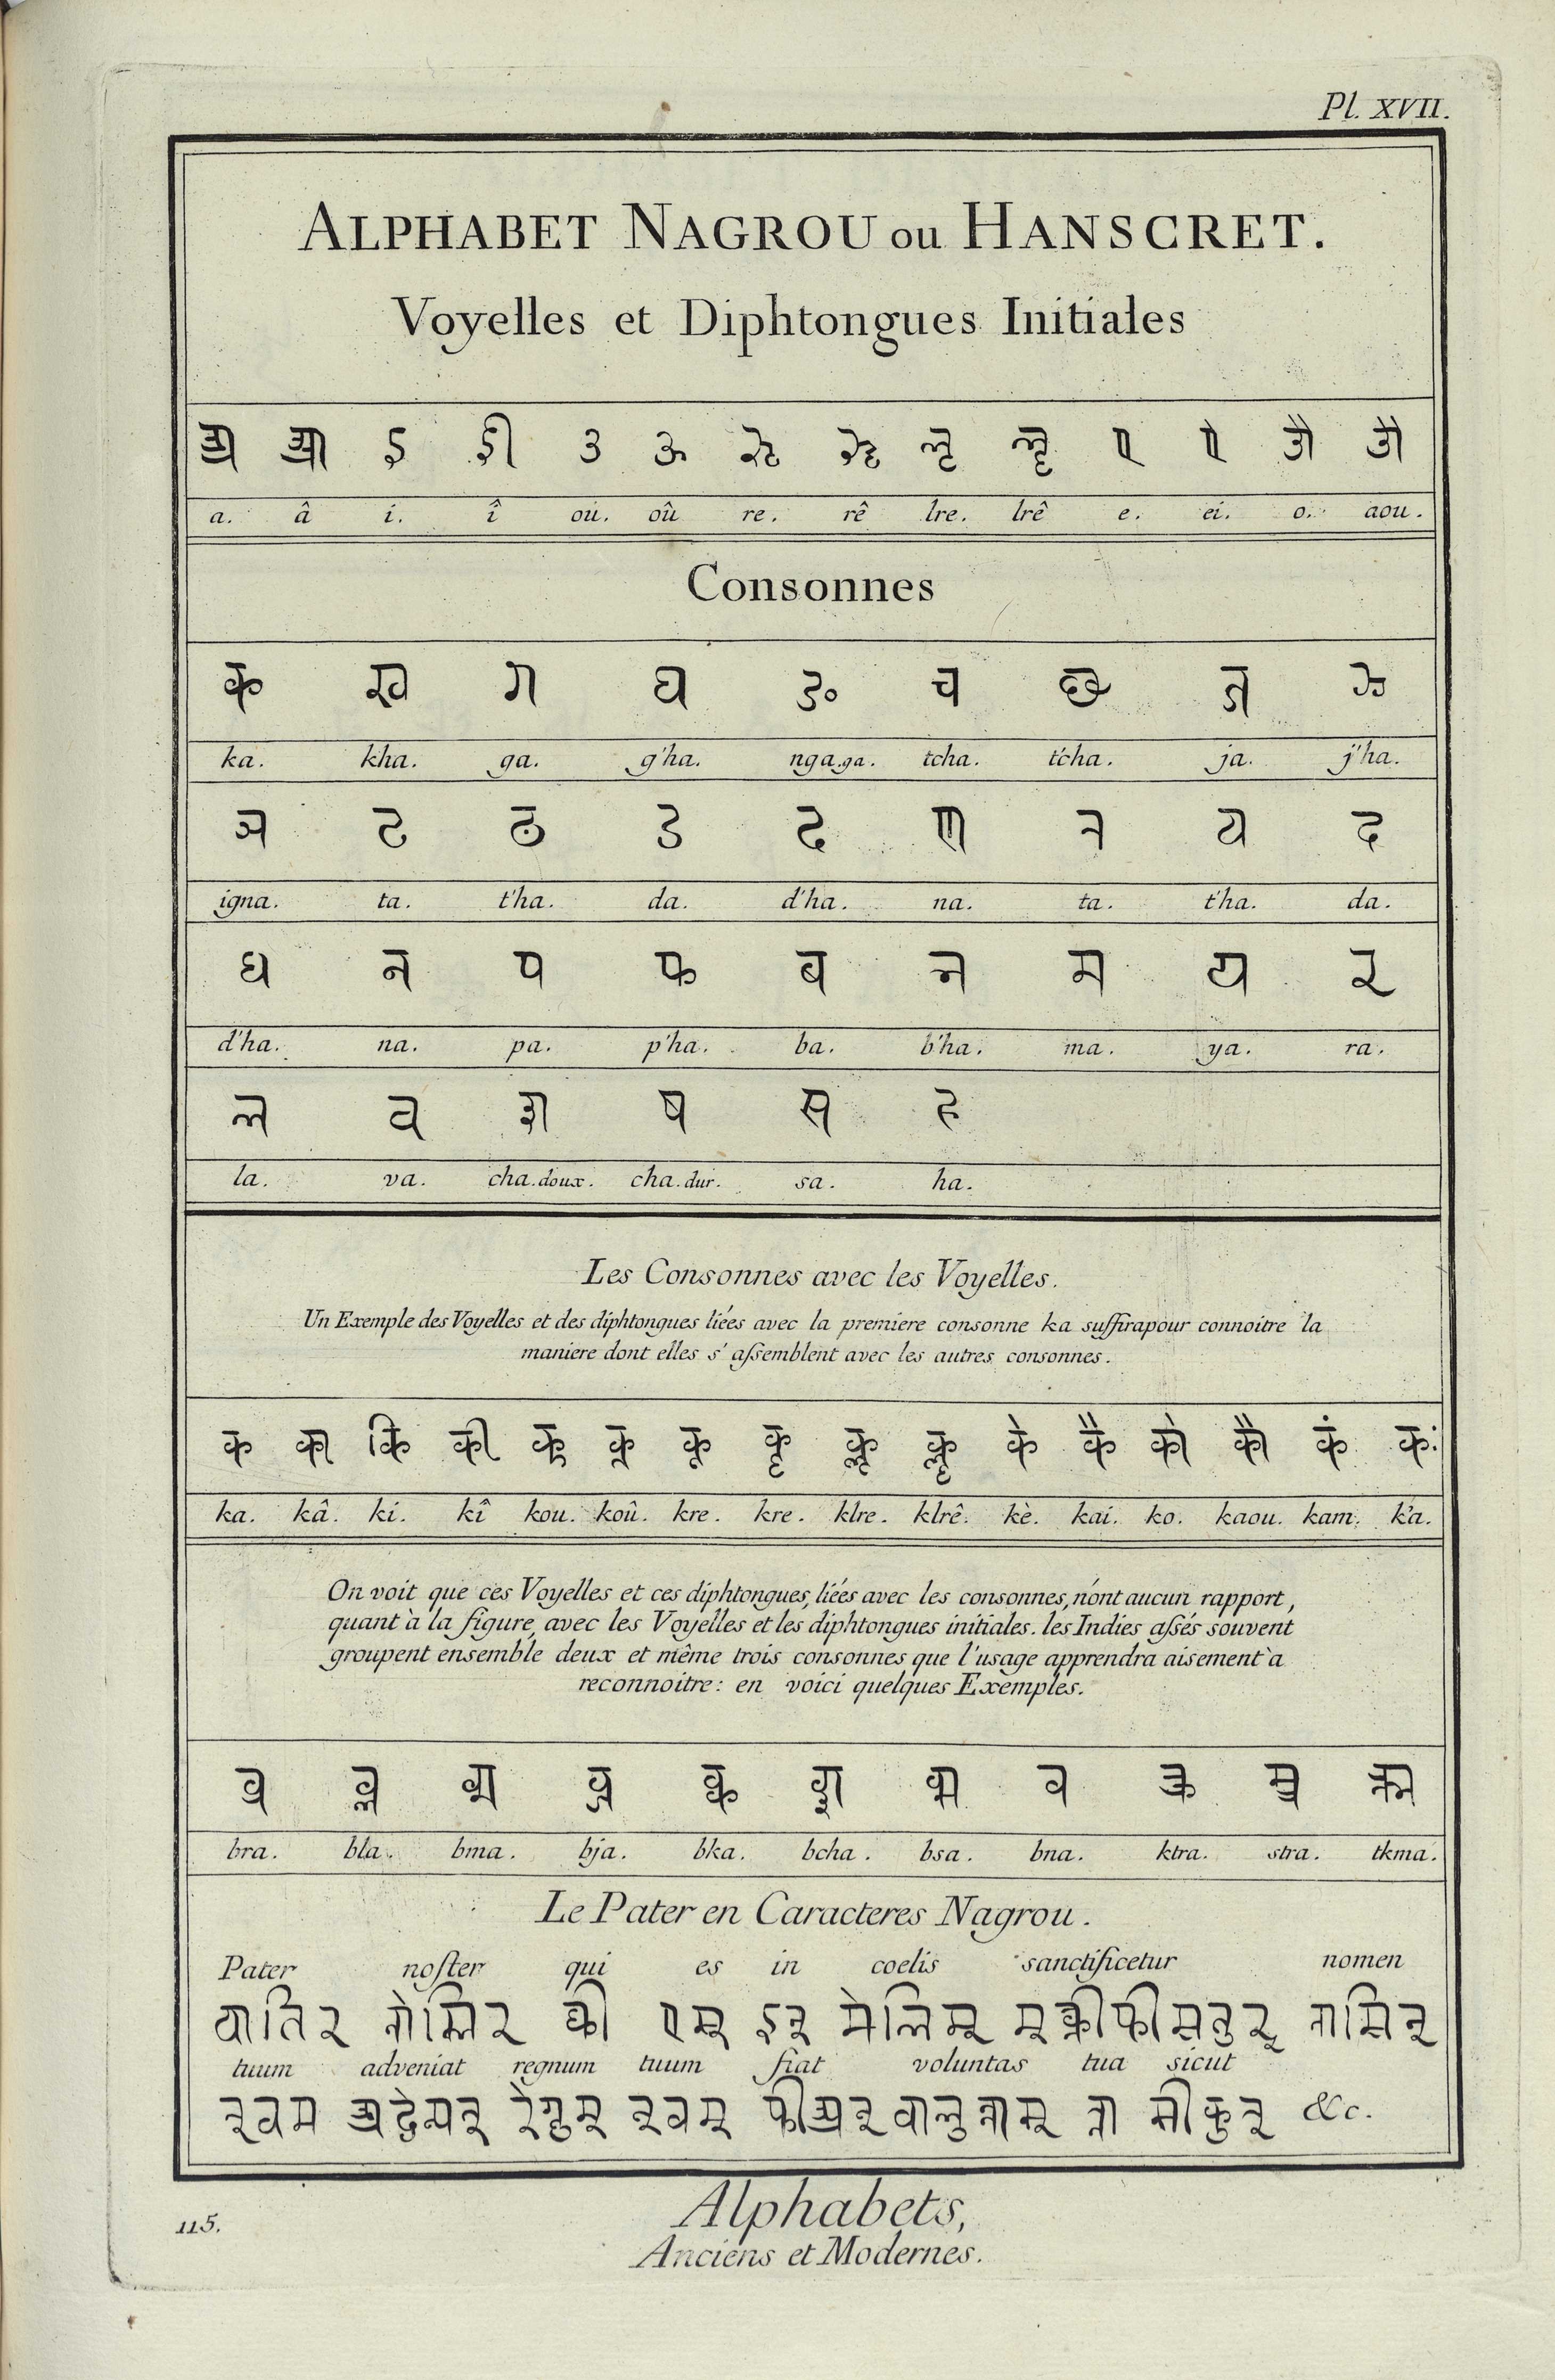 Pl. XVII.
ALPHABET NAGROU ou HANSCRET.
Voyelles et Diphtongues Initiales
अ आ इ ई उ ऊ ऋ ॠ ऌ ॡ ए ऐ ओ औ
a. â i. î ou. oû re. rê lre. lrê e. ei. o. aou.
Consonnes
क ख ग घ ङ च छ ज झ
ka. kha. ga. g'ha. nga.ga. tcha. t'cha. ja. j'ha.
ञ ट ठ ड ढ ण त थ द
igna. ta. t'ha. da. d'ha. na. ta. t'ha. da.
ध न प फ ब भ म य र
d'ha. na. pa. p'ha. ba. b'ha. ma. ya. ra.
ल व श ष स ह
la. va. cha.doux. cha.dur. sa. ha.
Les Consonnes avec les Voyelles.
Un Exemple des Voyelles et des diphtongues liées avec la premiere consonne ka suffirapour connoitre la
maniere dont elles s' assemblent avec les autres consonnes.
क का कि की कु कू कृ कॄ कॢ कॣ के कै को कौ कं कः
ka. kâ. ki. kî kou. koû. kre. kre. klre. klrê. kè. kai. ko. kaou. kam. k'a.
On voit que ces Voyelles et ces diphtongues, liées avec les consonnes, n'ont aucun rapport,
quant à la figure, avec les Voyelles et les diphtongues initiales. les Indies assés souvent
groupent ensemble deux et même trois consonnes que l'usage apprendra aisement à
reconnoitre: en voici quelques Exemples.
bra. bla. bma. bja. bka. bcha. bsa. bna. ktra. stra. tkma.
Le Pater en Caracteres Nagrou.
Pater noster qui es in coelis sanctificetur nomen
tuum adveniat regnum tuum fiat voluntas tua sicut
&c.
115.
Alphabets,
Anciens et Modernes.